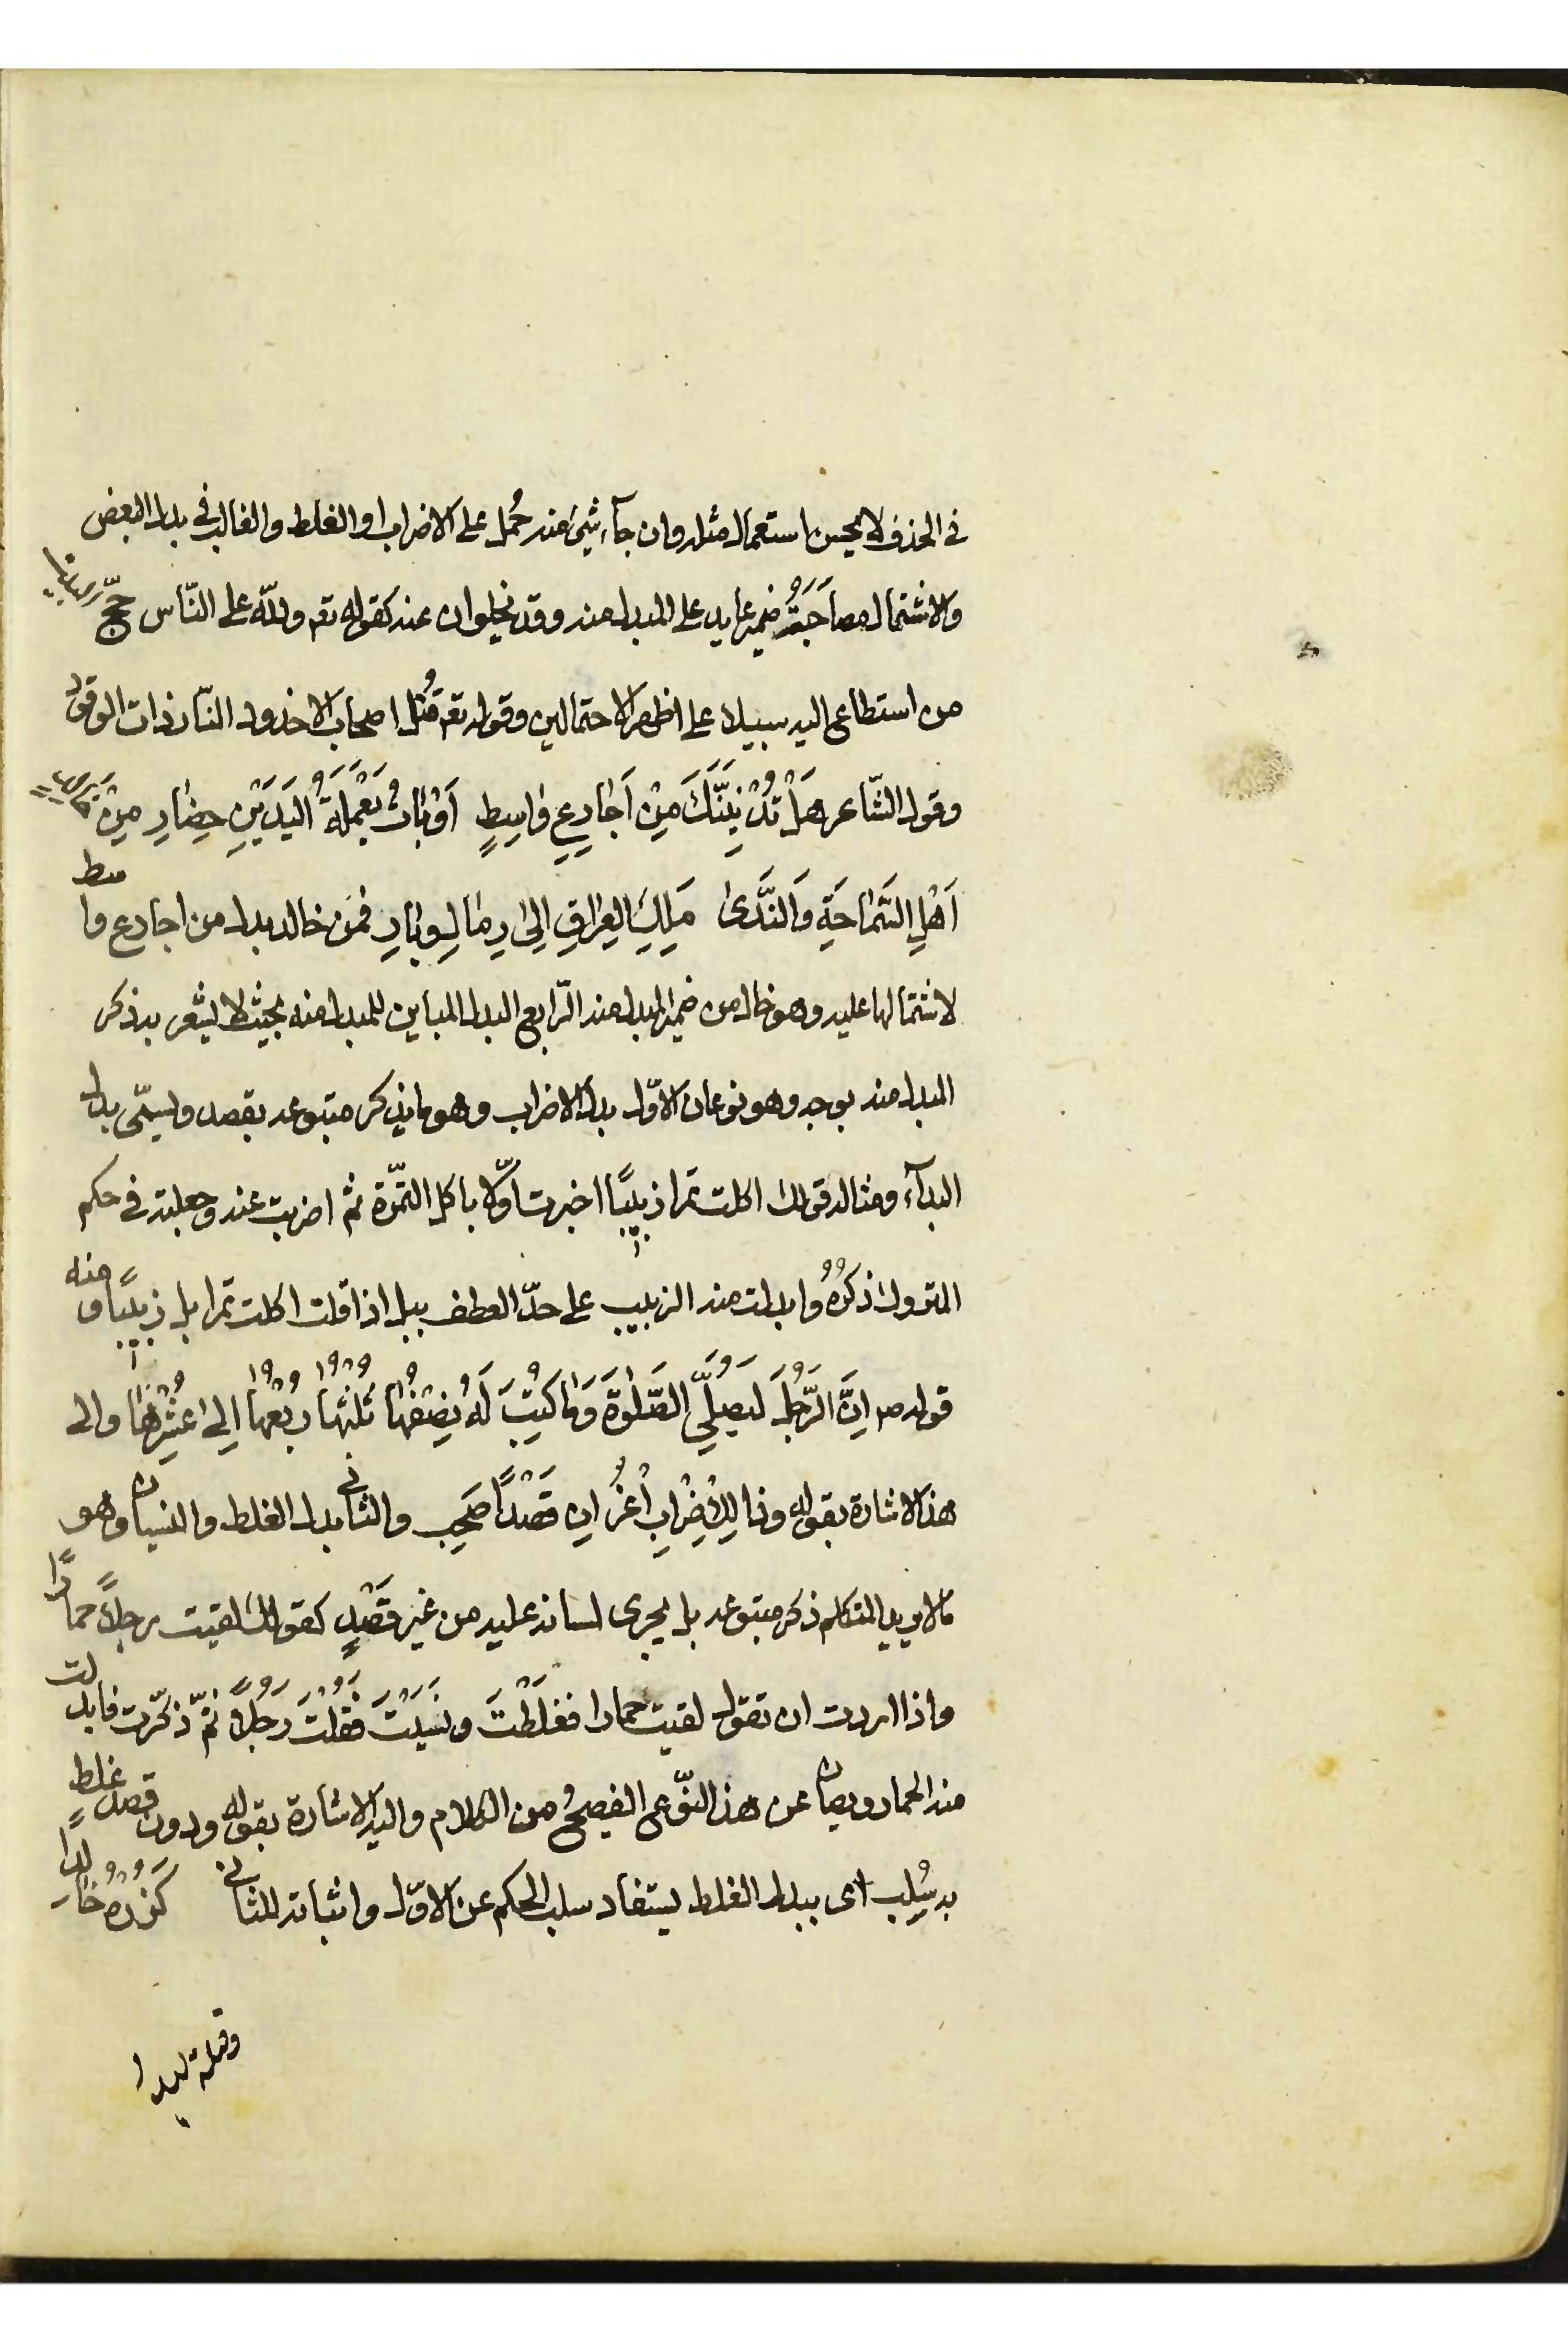 في الحذف لا يحسن استعمال مثله وان جآء شيئ منه حُمل على الاضراب او الغلط والغالب في بدل البعض
والاشتمال مصاحَبَةُ ضمير عايد على المبدل منه وقد يخلوان عنه كقوله تع ولله على النّاس حجّ البيت
من استطاع اليه سبيلا على اظهر الاحتمالين وقوله تع قُتل اصحاب الاخدود النّار ذات الوقود
وقول الشّاعر هَلْ تُدْنِيَنَّكَ مِنْ اَجَارِعِ وَاسِطٍ اَوْبَاتُ يَعْمَلَةِ اليَدَيْنِ حِضَارِ مِنْ خالد
اَهْلِ السَّمَاحَةِ وَالنَّدَى مَلِكِ العِرَاقِ اِلَى رِمَالِ وِبَارِ فمن خالد بدل من اجارع واسط
لاشتمالها عليه وهو خال من ضمير المبدل منه الرّابع البدل المباين للمبدل منه بحيث لا يشعر به ذكر
المبدل منه بوجه وهو نوعان الاوّل بدل الاضراب وهو ما يذكر متبوعه بقصد ويسمّى بدل
البدآء ومثاله قولك اكلت تمرا زبيبًا اخبرت اوّلا باكل التمرة ثم اضربت عنه وجعلته في حكم
المتروك ذكرُهُ وابدلت منه الزبيب على حدّ العطف ببل اذا قلت اكلت تمرا بل زبيبًا ومنه
قوله ص اِنَّ الرَّجُلَ لَيُصَلِّي الصَّلوٰةَ وَمَا كُتِبَ لَهُ نِصْفُهَا ثُلُثُهَا رُبُعُهَا اِلَى عُشْرِهَا والى
هذا الاشارة بقوله وذا لِلاِضْرابِ اُعْزُ اِن قَصْدًا صَحِب والثاني بدل الغلط والنسيان وهو
ما لا يريد المتكلم ذكر متبوعه بل يجرى لسانه عليه من غير قَصْدٍ كقولك لقيت رجلاً حمارًا
واذا اردت ان تقول لقيت حمارا فغلَطْتَ ونَسَيْتَ فقُلْتَ رَجُلاً ثمّ ذكّرت فابدلت
منه الحمار ويصان عن هذا النّوع الفصيحُ من الكلام واليه الاشارة بقوله ودون قصد غلطٌ
به سُلِب اى ببدل الغلط يستفاد سلب الحكم عن الاوّل واثباته للثاني كَزُرْهُ خَالدا
وقبله اليدا